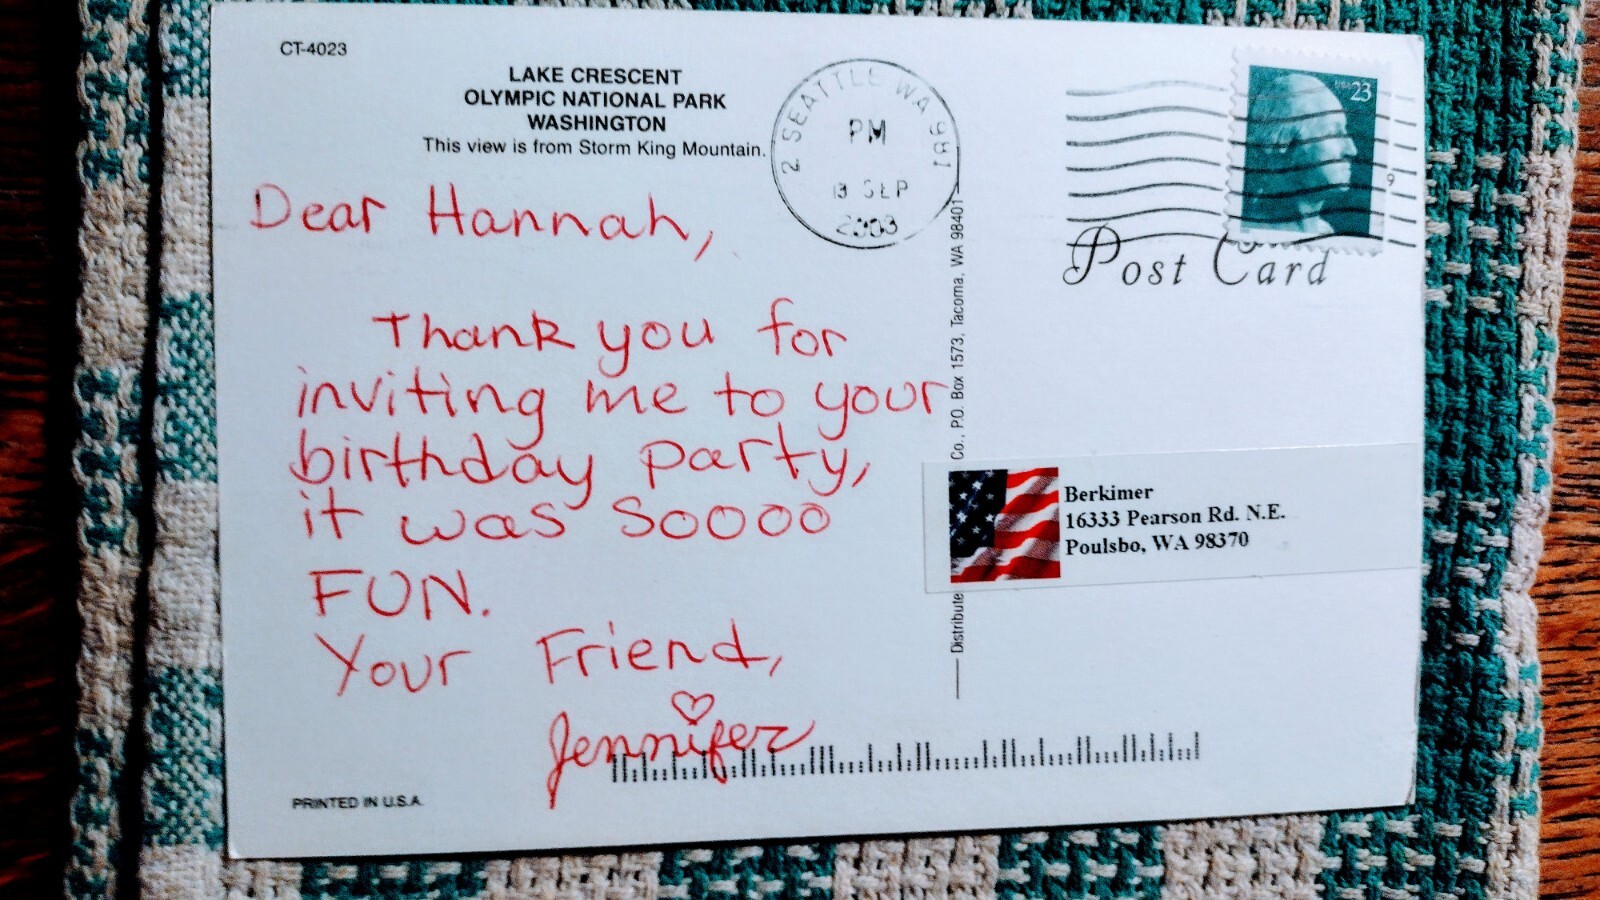 CT-4023
LAKE CRESCENT
OLYMPIC NATIONAL PARK
WASHINGTON
This view is from Storm King Mountain.
2 SEATTLE WA 981
PM
SEP
2003
USA 23
9
Post Card
Dear Hannah,
Thank you for
inviting me to your
birthday party,
it was soooo
FUN.
Your Friend,
Jennifer
Distribute
Co., P.O. Box 1573, Tacoma, WA 98401
Berkimer
16333 Pearson Rd. N.E.
Poulsbo, WA 98370
PRINTED IN U.S.A.